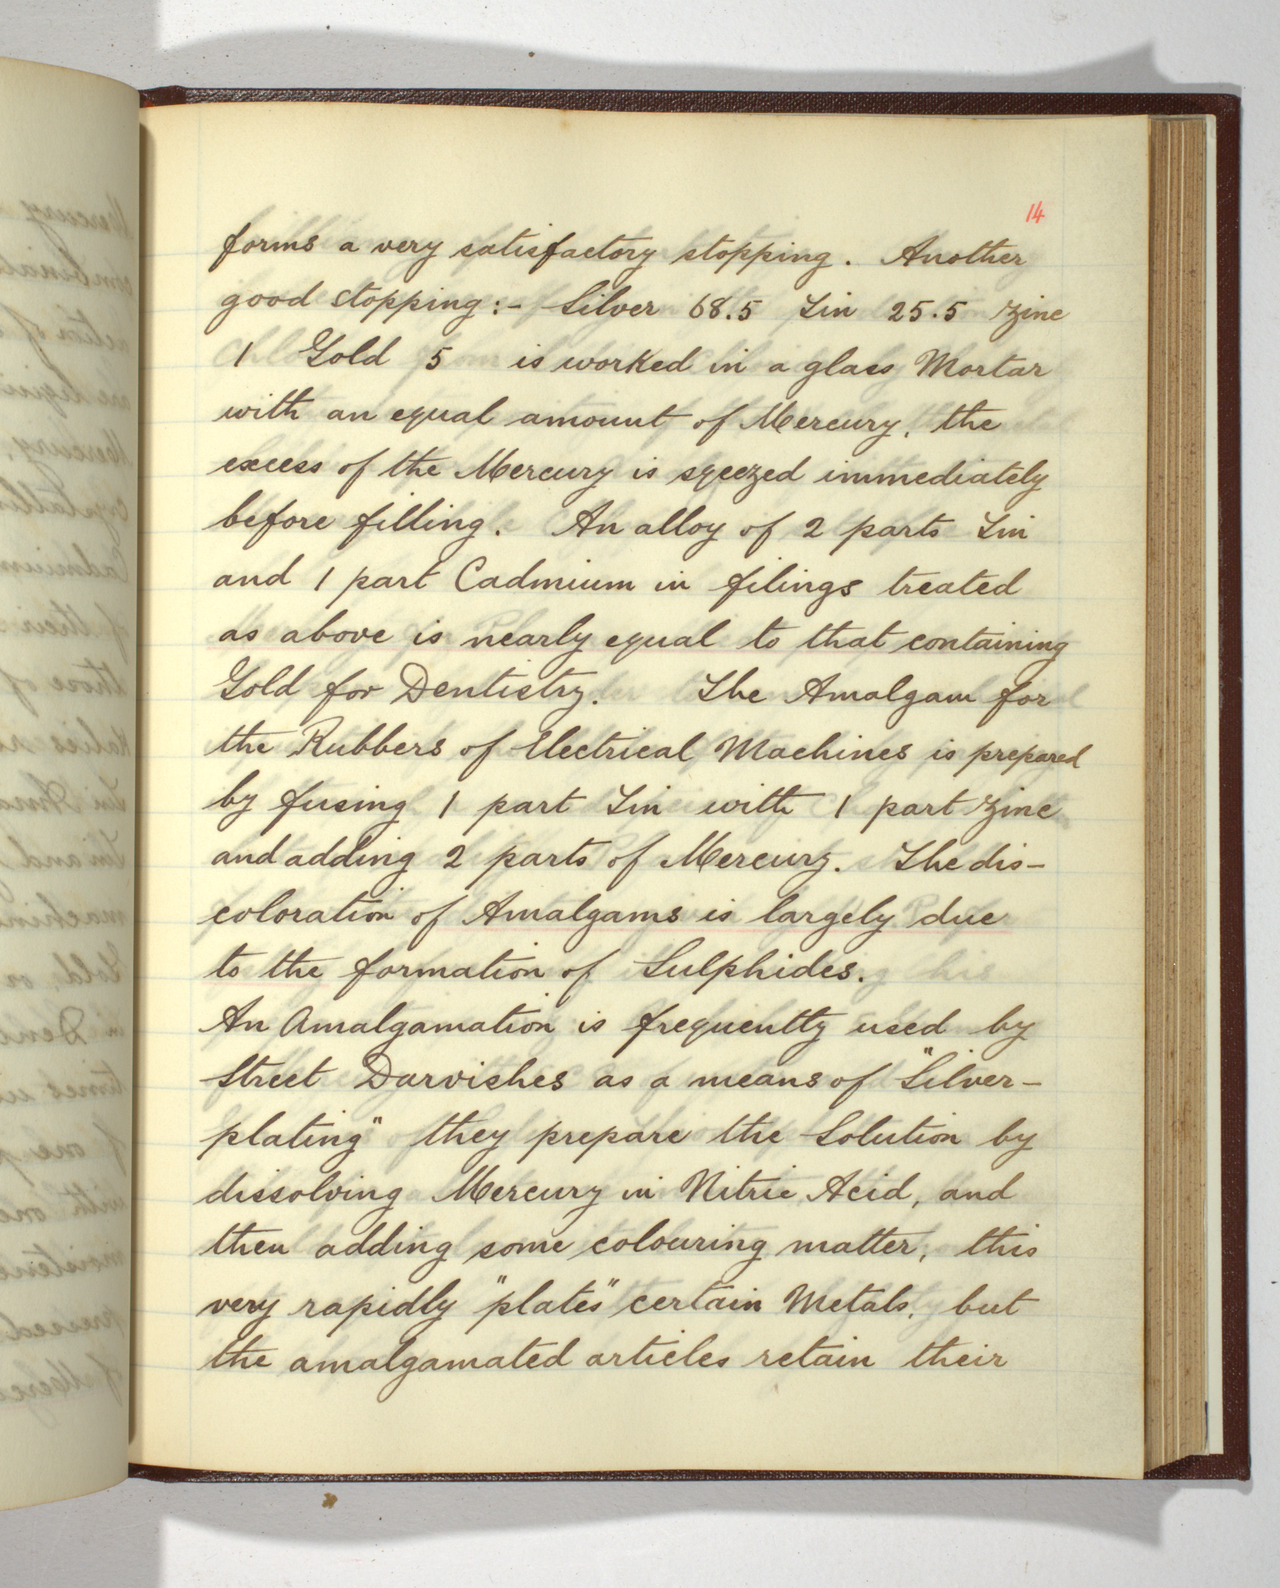 14
forms a very satisfactory stopping. Another
good stopping:- Silver 68.5 Tin 25.5 Zinc
1 Gold 5 is worked in a glass Mortar
with an equal amount of Mercury, the
excess of the Mercury is sqeezed immediately
before filling. An alloy of 2 parts Tin
and 1 part Cadmium in filings treated
as above is nearly equal to that containing
Gold for Dentistry. The Amalgam for
the Rubbers of Electrical Machines is prepared
by fusing 1 part Tin with 1 part Zinc
and adding 2 parts of Mercury. The dis-
coloration of Amalgams is largely due
to the formation of Sulphides.
An Amalgamation is frequently used by
Street Darvishes as a means of "Silver-
plating" they prepare the Solution by
dissolving Mercury in Nitric Acid, and
then adding some colouring matter, this
very rapidly "plates" certain Metals, but
the amalgamated articles retain their